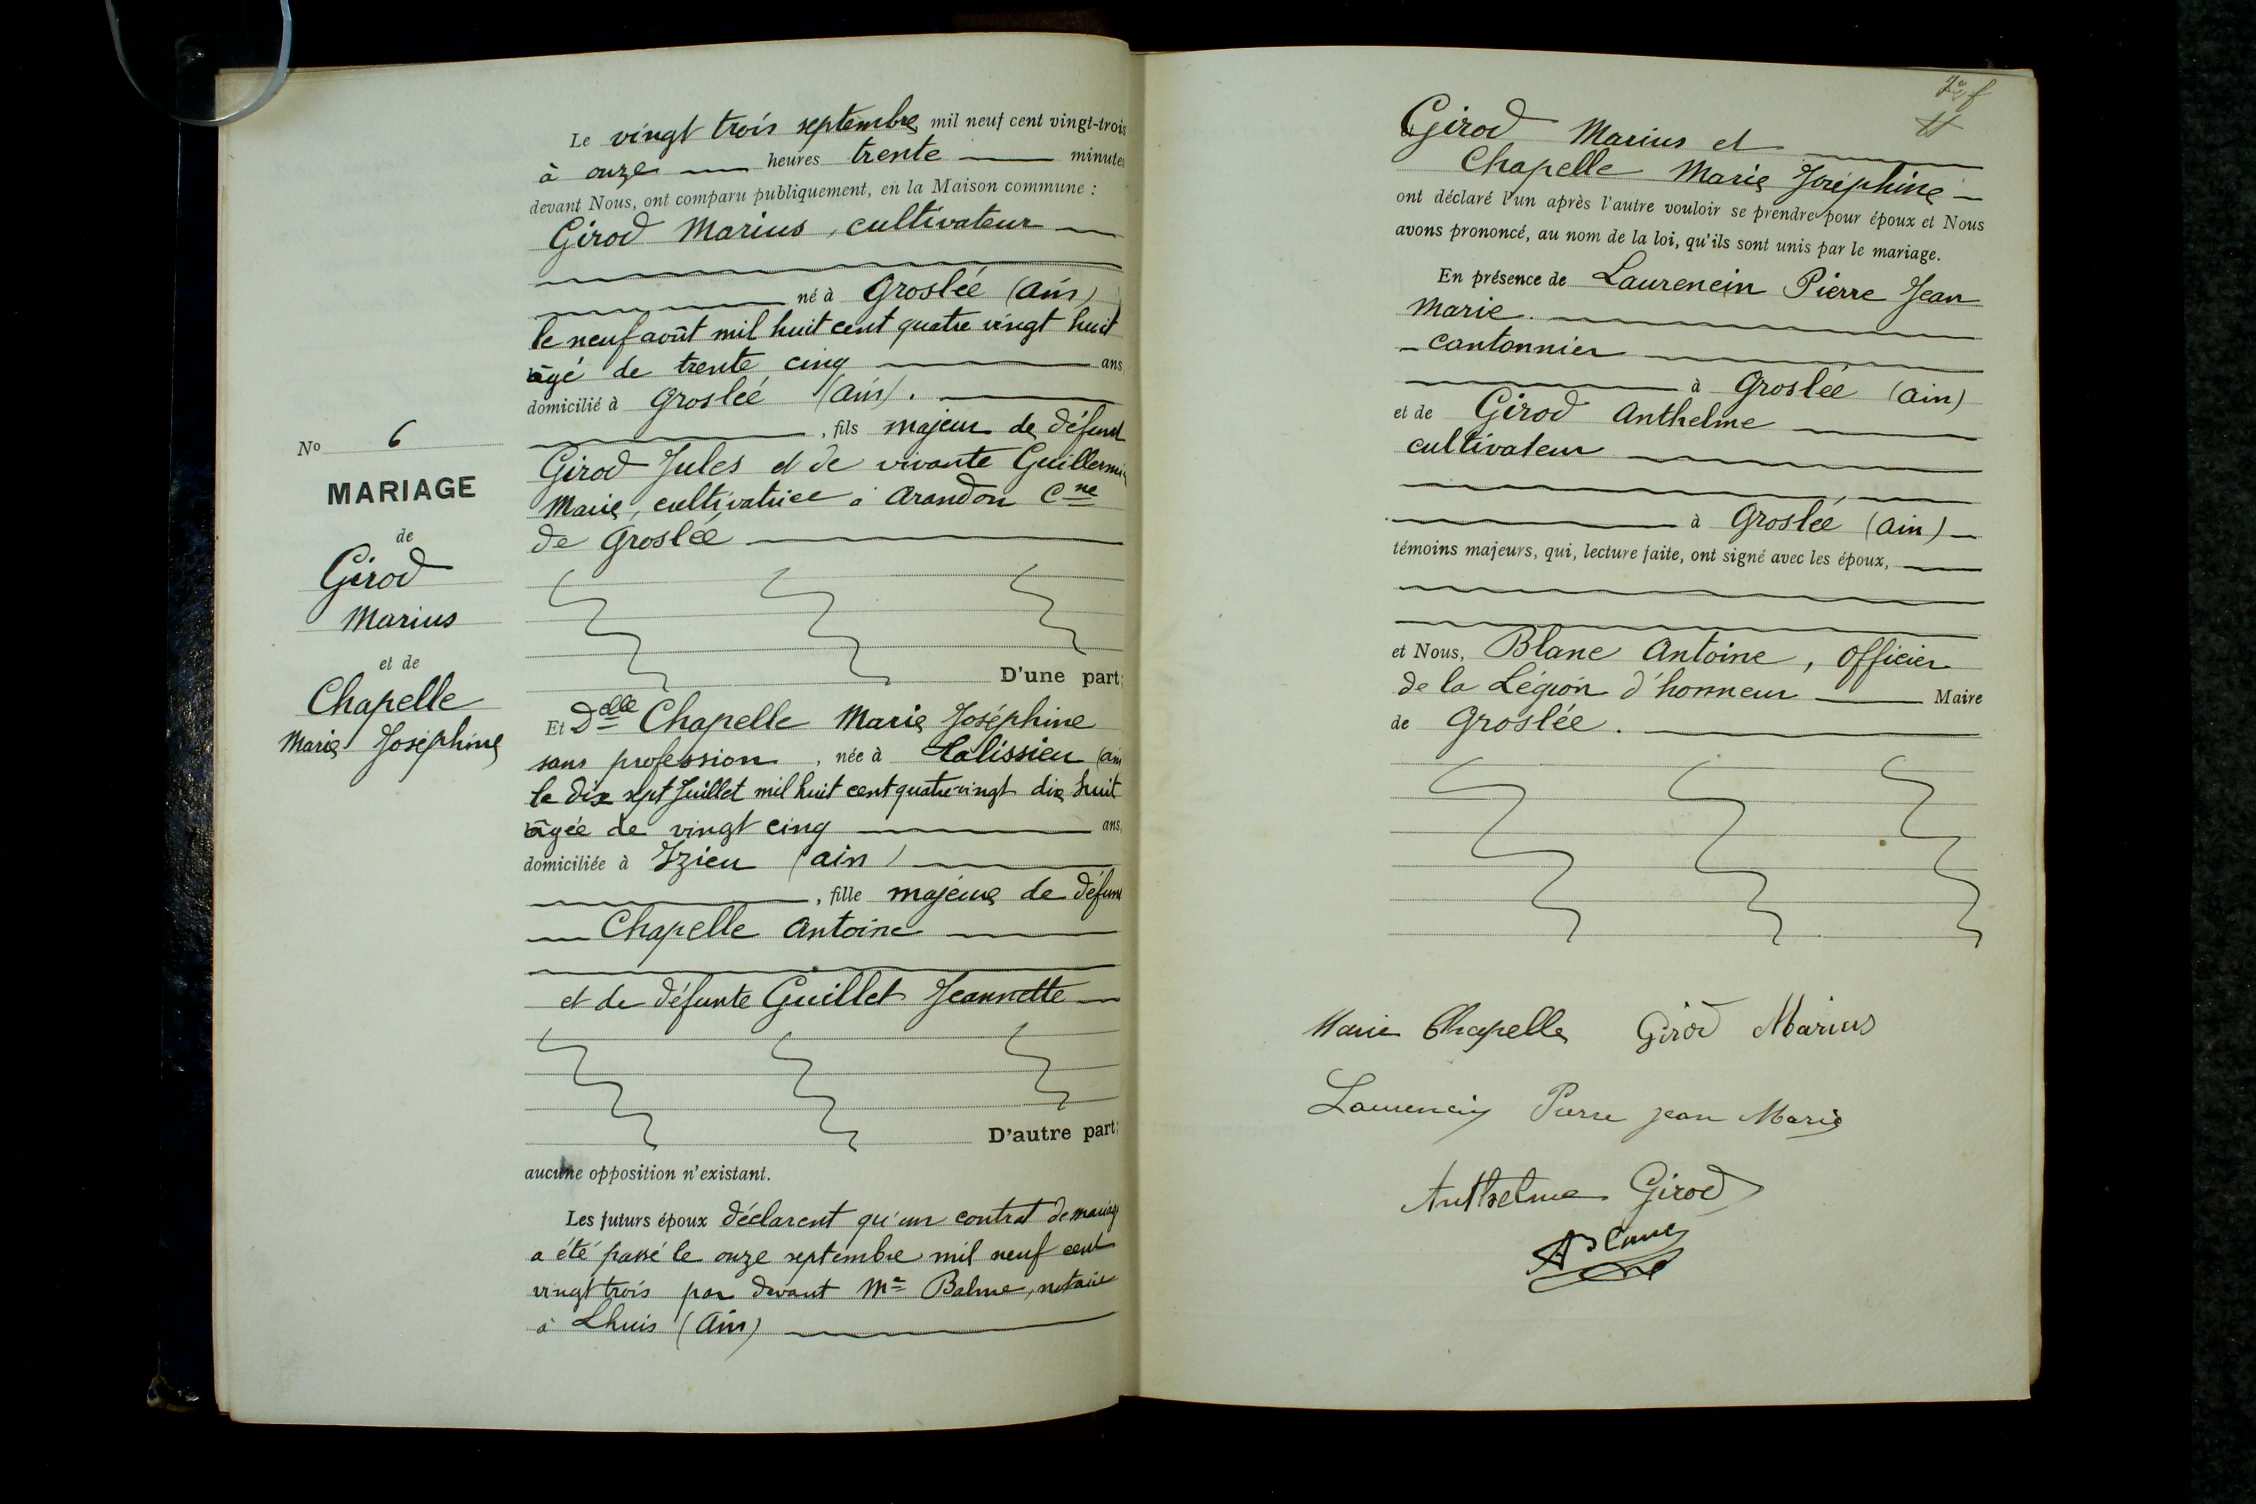 Le vingt trois septembre mil neuf cent vingt-trois
à onze heures trente minutes
devant Nous, ont comparu publiquement, en la Maison commune :
Girod Marius, cultivateur
né à Groslée (Ain)
le neuf août mil huit cent quatre vingt huit
âgé de trente cinq ans
domicilié à Groslée (Ain).
, fils majeur de défunt
Girod Jules et de vivante Guillermin
Marie, cultivatrice à Arandon Cne
de Groslée
D'une part;
Et Delle Chapelle Marie Joséphine
sans profession, née à Calissieu (ain
le dix sept Juillet mil huit cent quatre vingt dix huit
âgée de vingt cinq ans,
domiciliée à Izieu (ain)
, fille majeure de défunt
Chapelle Antoine
et de défunte Guillet Jeannette
D'autre part;
aucune opposition n'existant.
Les futurs époux déclarent qu'un contrat de mariage
a été passé le onze septembre mil neuf cent
vingt trois par devant Me Balme, notaire
à Lhuis (Ain)
No 6
MARIAGE
de
Girod
Marius
et de
Chapelle
Marie Joséphine
Girod Marius et
Chapelle Marie Joséphine
ont déclaré l'un après l'autre vouloir se prendre pour époux et Nous
avons prononcé, au nom de la loi, qu'ils sont unis par le mariage.
En présence de Laurencin Pierre Jean
Marie.
cantonnier
à Groslée (Ain)
et de Girod Anthelme
cultivateur
à Groslée (Ain)
témoins majeurs, qui, lecture faite, ont signé avec les époux,
et Nous, Blanc Antoine, Officier
de la Légion d'honneur Maire
de Groslée.
Marie Chapelle Girod Marius
Laurencin Pierre Jean Marie
Anthelme Girod
A Blanc